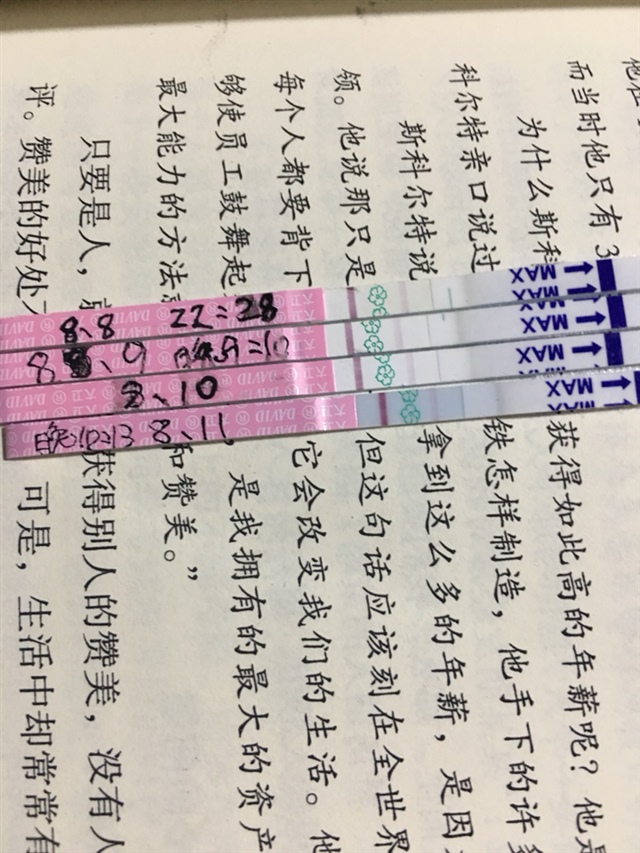 而当时他只有 3
为什么斯科 获得如此高的年薪呢？他是
科尔特亲口说过 铁怎样制造，他手下的许多
斯科尔特说 拿到这么多的年薪，是因
领。他说那只是 但这句话应该刻在全世界
每个人都要背下 它会改变我们的生活。他
够使员工鼓舞起 是我拥有的最大的资产
最大能力的方法 和赞美。”
只要是人， 获得别人的赞美，没有人
评。赞美的好处 可是，生活中却常常有
MAX
8、8 22:28
DAVID 大卫
MAX
8 、9
DAVID 大卫
MAX
8、10
DAVID 大卫
MAX
8、11